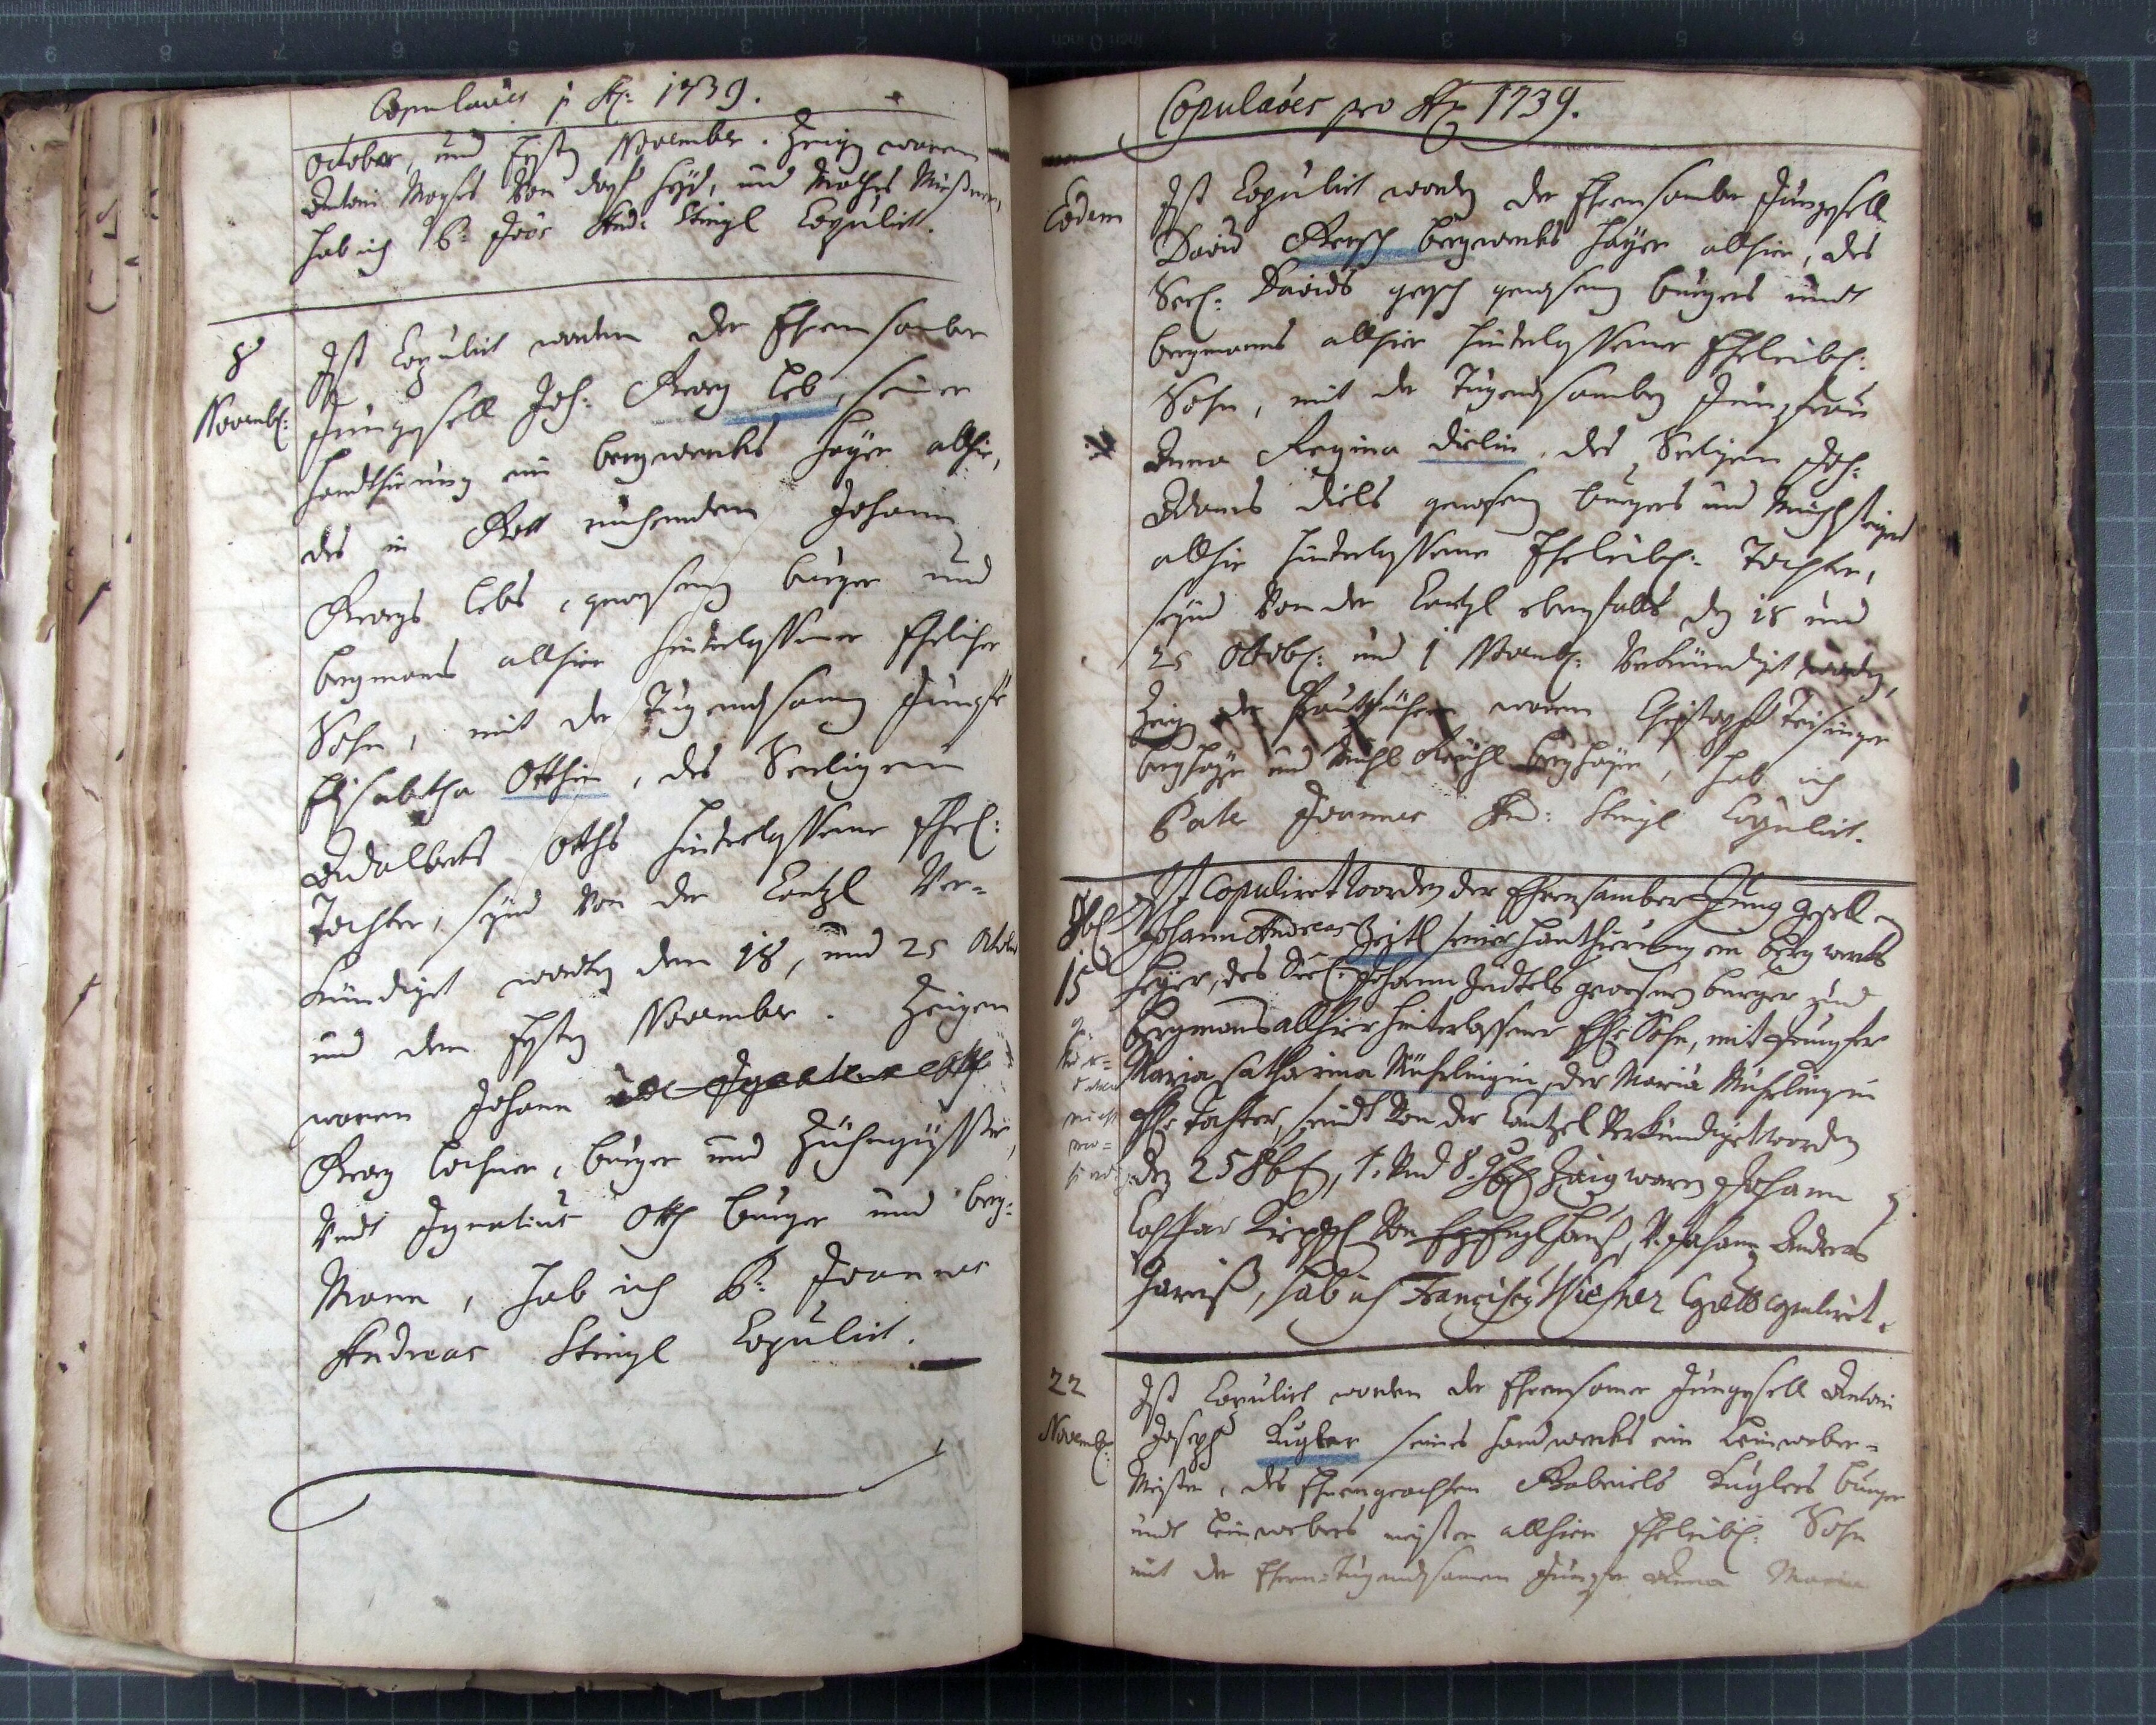 Copulaões p Ao: 1739.
October, und Ersten November. Zeugen waren
Antoni Moyses Von dorf Heyd, und Mathes
hab ich P: Joës And: Stingl Copulirt.
8
Novemb:
Ist Copulirt worden der Ehrensambe
Junggesell Joh: Georg Leb, seiner
Handthierung ein bergwercks Häyer allhie,
des in Gott ruhendem Johann
Georgs Lebs, gewesenen burger und
bergmanns allhier hinterlassener Ehelicher
Sohn, mit der Tugendsamen Jungfr
Elisabetha Otthin, des Seeligen
Adalberts Otths hinterlassene Ehel:
Tochter, seynd Von der Cantzl Ver=
kündiget worden den 18, und 25 Octobr
und den Ersten November. Zeugen
waren Johann
Georg Lochner, burger und Zühngüsser,
Undt Ignatius Otth burger und berg=
Mann, hab ich P: Joannes
Andreas Stingl Copulirt.
Copulaões pro Ao 1739.
Eodem
Ist Copulirt worden der Ehrensambe Junggesell
David Gersch bergwercks Häyer allhier, des
Seel: Davids gersch gewesenen burgers undt
bergmanns allhier hinterlassener Eheleibl:
Sohn, mit der Tugendsamben Jungfrau
Anna Regina Dielin, des Seeligen Joh:
Adams Diels gewesenen burgers und
allhie hinterlassene Eheleibl: Tochter,
seynd Von der Cantzl ebenfalls den 18 und
25 Octob: und 1 Novemb: Verkündiget worden,
Zeugen der waren Christoph Teisinger
berghäyer und berghäyer, hab ich
Pater Joannes And: Stingl Copulirt.
15
Ist Copuliret worden der Ehrensamber Jung gesell
Johann Andreas Zeitl seiner Hanthierung ein berg wercks
Heyer, des Seel: Johann Zeidtels gewesenen burger und
bergmans allhier hinterlassener Ehel: Sohn, mit Jungfer
Maria Catharina Mührlingin, der Maria Mührlingin
Ehel: Tochter, seindt Von der Cantzel Verkündiget worden
den 25 8b, 1. Und 8. 9b Zeugen waren Johann
Von Englhauß, V. Johann Andreas
hab ich Francisc Wiesner copuliret.
22
Novemb:
Ist Copulirt worden der Ehrensame Junggesell Antoni
Joseph Kugler seines Handwercks ein Leinweber=
Meister, des Ehrengeachten Gabriels Kuglers burger
undt Leinwebers meister allhier Eheleibl: Sohn
mit der Ehren=Tugendsamen Jungfr Anna Maria